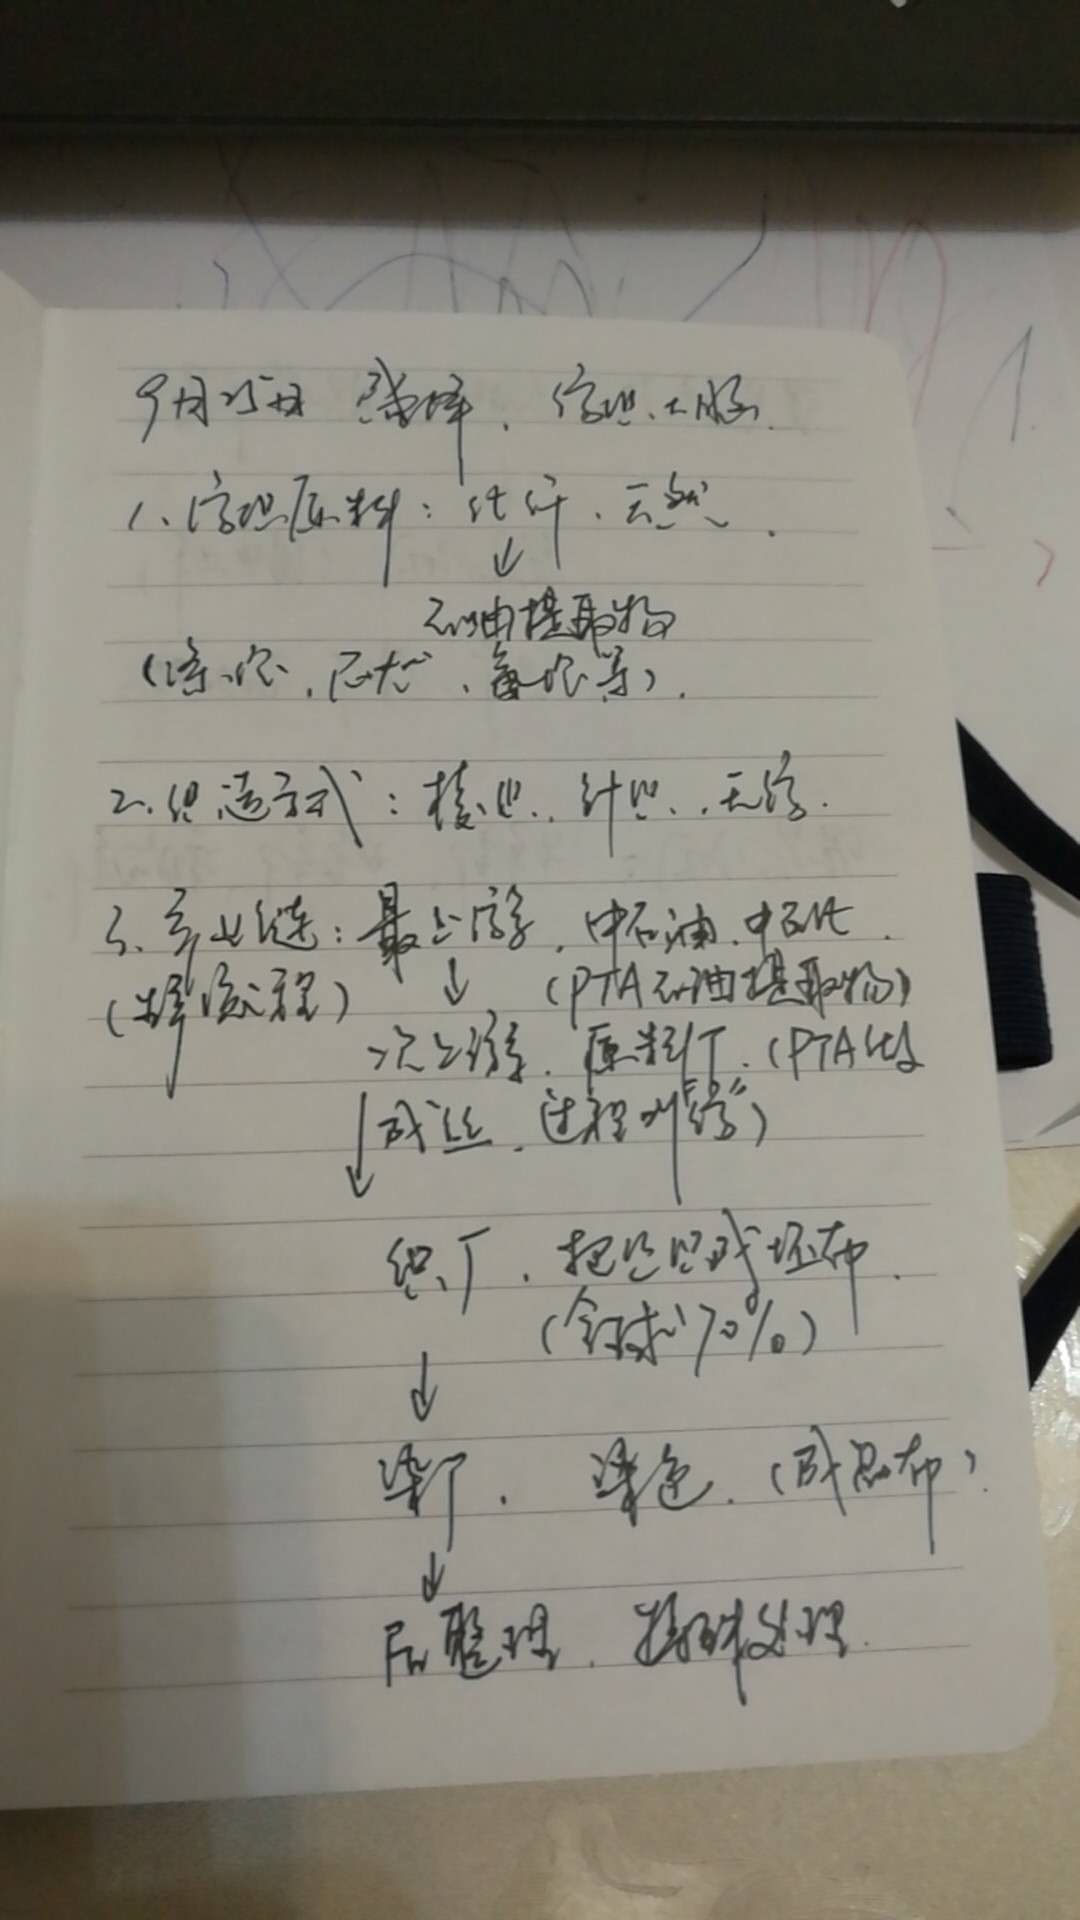 9月25日 盛泽、纺织、上服.
1、纺织原料：化纤、天然.
↓
石油提取物
（涤纶、尼龙、氨纶等）.
2、织造方式：梭织、针织、无纺.
3、产业链：最上游、中石油、中石化.
（择流程） ↓ （PTA石油提取物）
次上游、原料厂、（PTA化
↓ 成丝、过程叫“纺”）
织厂、把丝织成坯布.
（全球70%）
↓
染厂、染色、（成品布）.
↓
后整理、特殊处理.